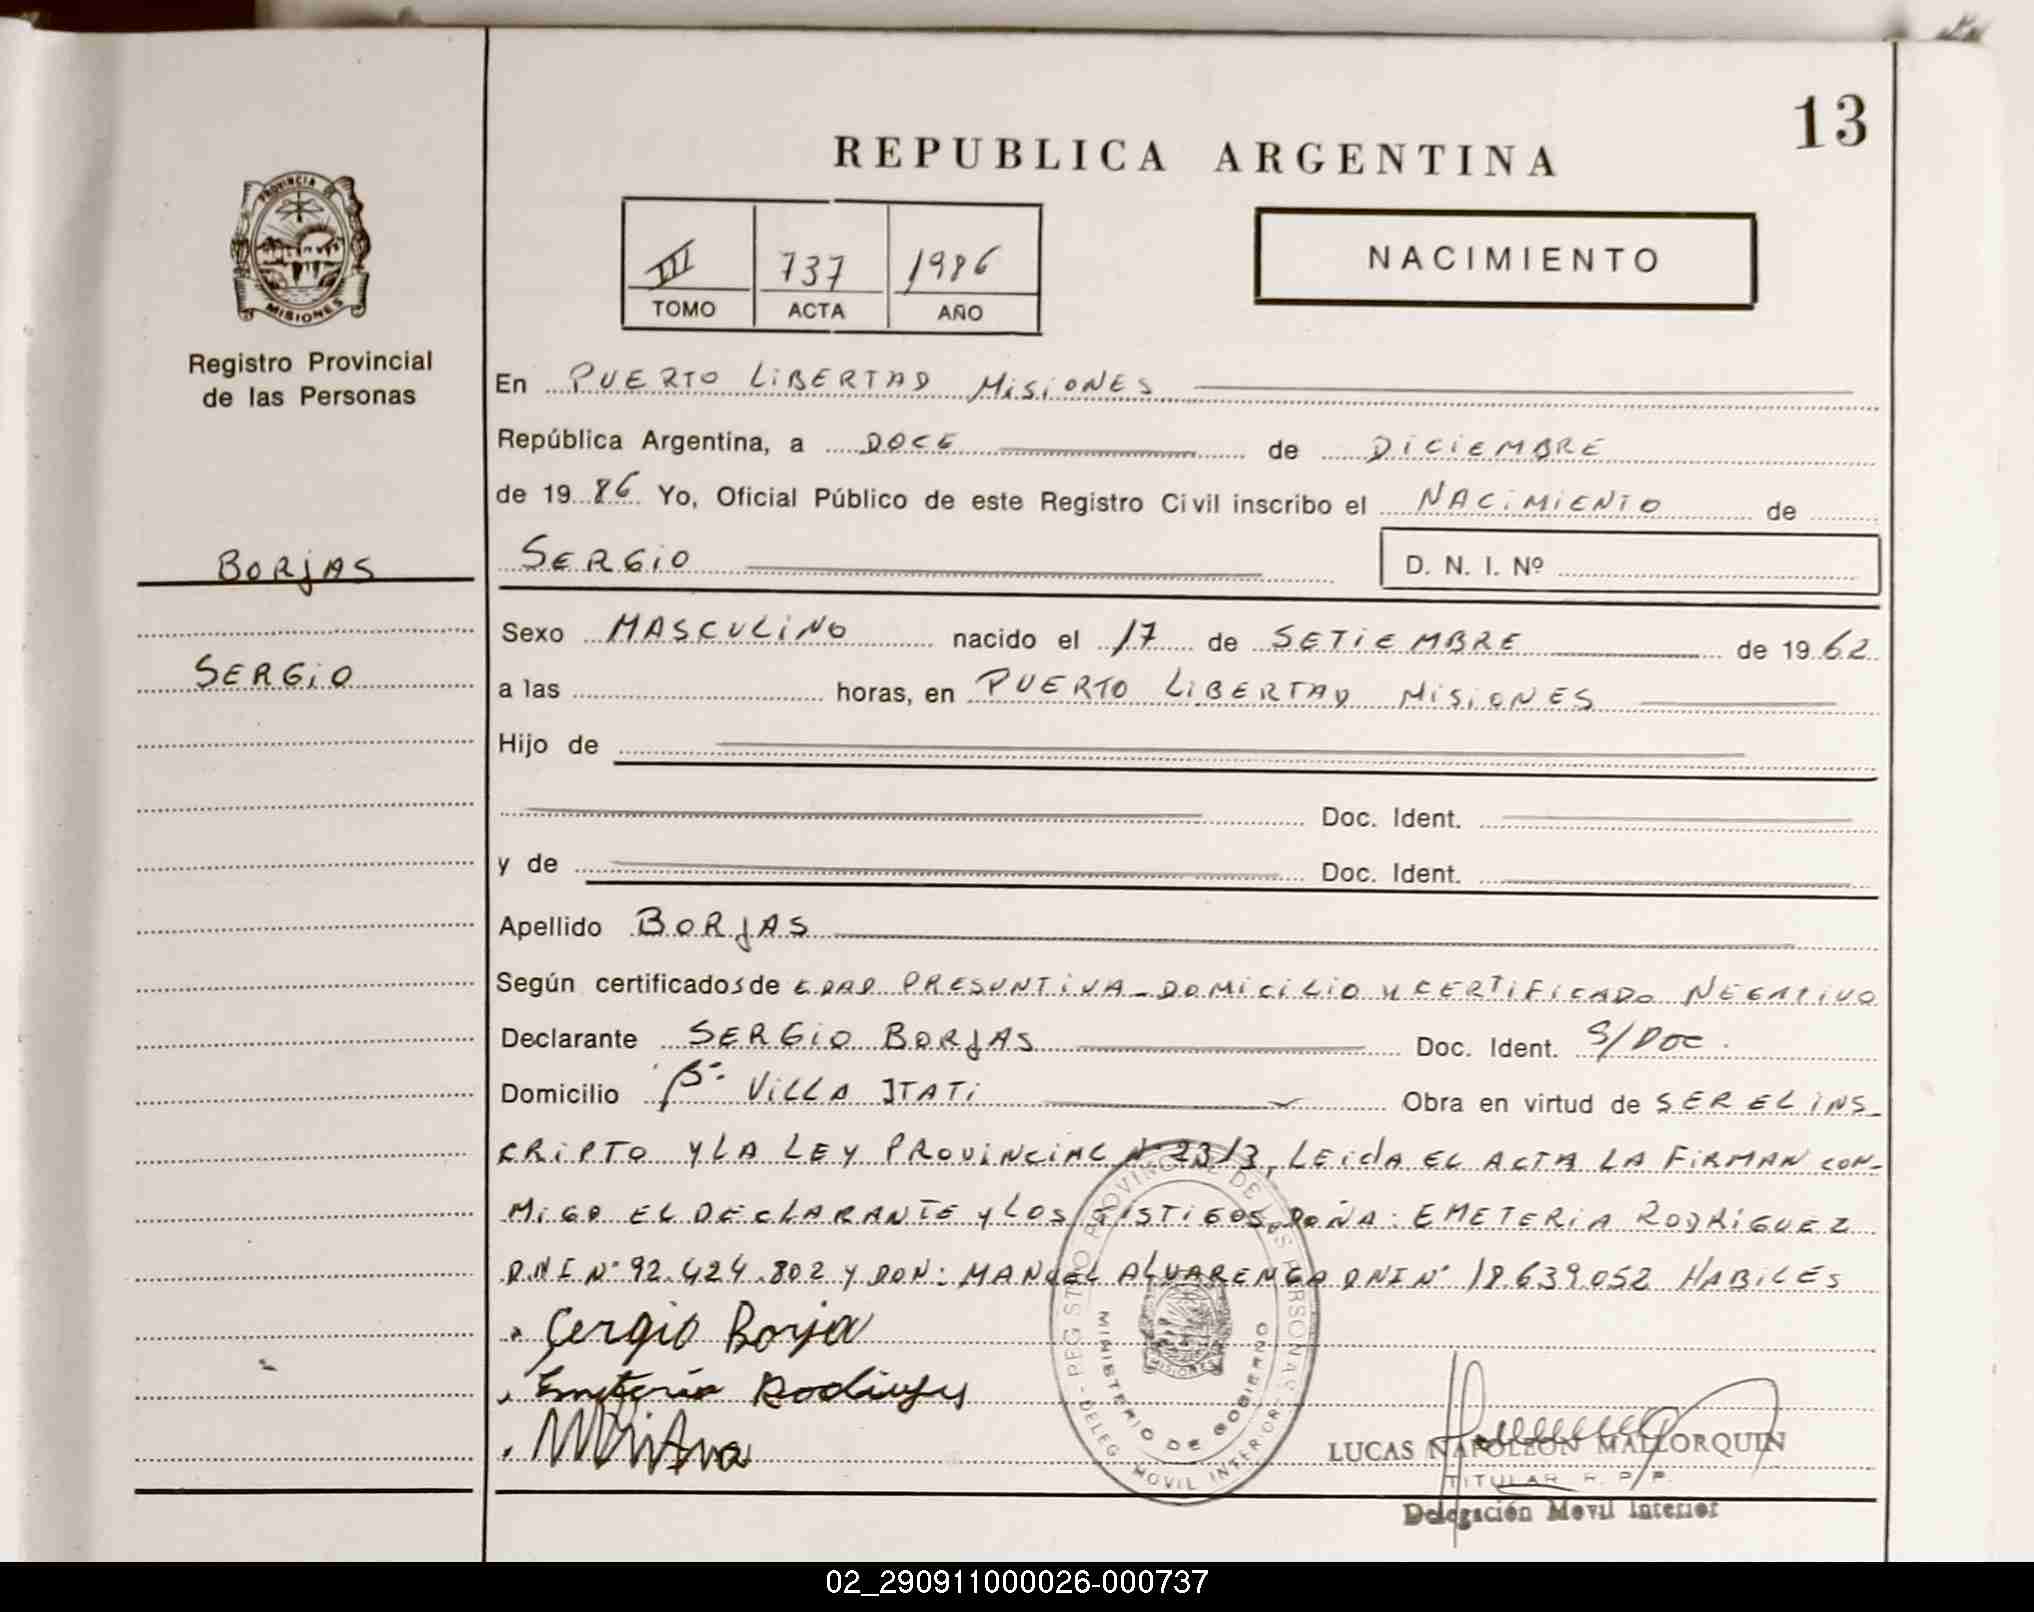 13
REPUBLICA ARGENTINA
PROVINCIA DE
MISIONES
III 737 1986
TOMO ACTA AÑO
NACIMIENTO
Registro Provincial
de las Personas
En PUERTO LIBERTAD MISIONES
República Argentina, a DOCE de DICIEMBRE
de 19 86 Yo, Oficial Público de este Registro Civil inscribo el NACIMIENTO de
BORJAS
SERGIO D. N. I. Nº
Sexo MASCULINO nacido el 17 de SETIEMBRE de 19 62
SERGIO
a las horas, en PUERTO LIBERTAD MISIONES
Hijo de
Doc. Ident.
y de Doc. Ident.
Apellido BORJAS
Según certificados de EDAD PRESUNTIVA - DOMICILIO Y CERTIFICADO NEGATIVO
Declarante SERGIO BORJAS Doc. Ident. S/DOC.
Domicilio Bº VILLA ITATI Obra en virtud de SER EL INS-
CRIPTO Y LA LEY PROVINCIAL Nº 2313, LEIDA EL ACTA LA FIRMAN CON-
MIGO EL DECLARANTE Y LOS TISTIGOS DOÑA: EMETERIA RODRIGUEZ
DNI Nº 92.424.802 Y DON: MANUEL ALVARENGA DNI Nº 18.639.052 HABILES
Cergio Borja
Emeteria Rodriguez
REGISTRO PROVINCIAL DE LAS PERSONAS
MINISTERIO DE GOBIERNO
DELEG. MOVIL INTERIOR
LUCAS NAPOLEON MALLORQUIN
TITULAR R. P. P.
Delegación Movil Interior
02_290911000026-000737